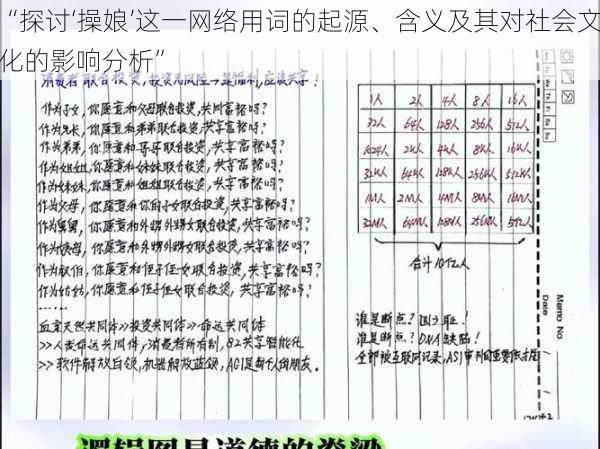 “探讨‘操娘’这一网络用词的起源、含义及其对社会文
化的影响分析”
消费者联合投资,投资无风险→是福利,应该共享!
作为子女,你愿意和父母联合投资,共同富裕吗?
作为兄长,你愿意和弟弟联合投资,共享富裕吗?
作为弟弟,你愿意和哥哥联合投资,共享富裕吗?
作为姐姐,你愿意和妹妹联合投资,共享富裕吗?
作为妹妹,你愿意和姐姐联合投资,共享富裕吗?
作为父母,你愿意和你的子女联合投资,共享富裕吗?
作为舅舅,你愿意和外甥外甥女联合投资,共享富裕吗?
作为姨母,你愿意和外甥外甥女联合投资,共享富裕吗?
作为叔伯,你愿意和侄子侄女联合投资,共享富裕吗?
作为姑姑,你愿意和侄子侄女联合投资,共享富裕吗?
......
血亲天然共同体>>投资共同体>>命运共同体
>>人类命运共同体,消费者所有制,82共享智能化
>>软件解放白领,机器解放蓝领,AGI是每个人的朋友。
1人 2人 4人 8人 16人
32人 64人 128人 256人 512人
1024人 2K人 4K人 8K人 16K人
32K人 64K人 128K人 256K人 512K人
1M人 2M人 4M人 8M人 16M人
32M人 64M人 128M人 256M人 512人
合计10亿人
谁是断点?
谁是断点?DNA缺陷!
全部被互联网记录,ASI审判的重要依据
Memo No.
Date
逻辑图是道德的脊梁